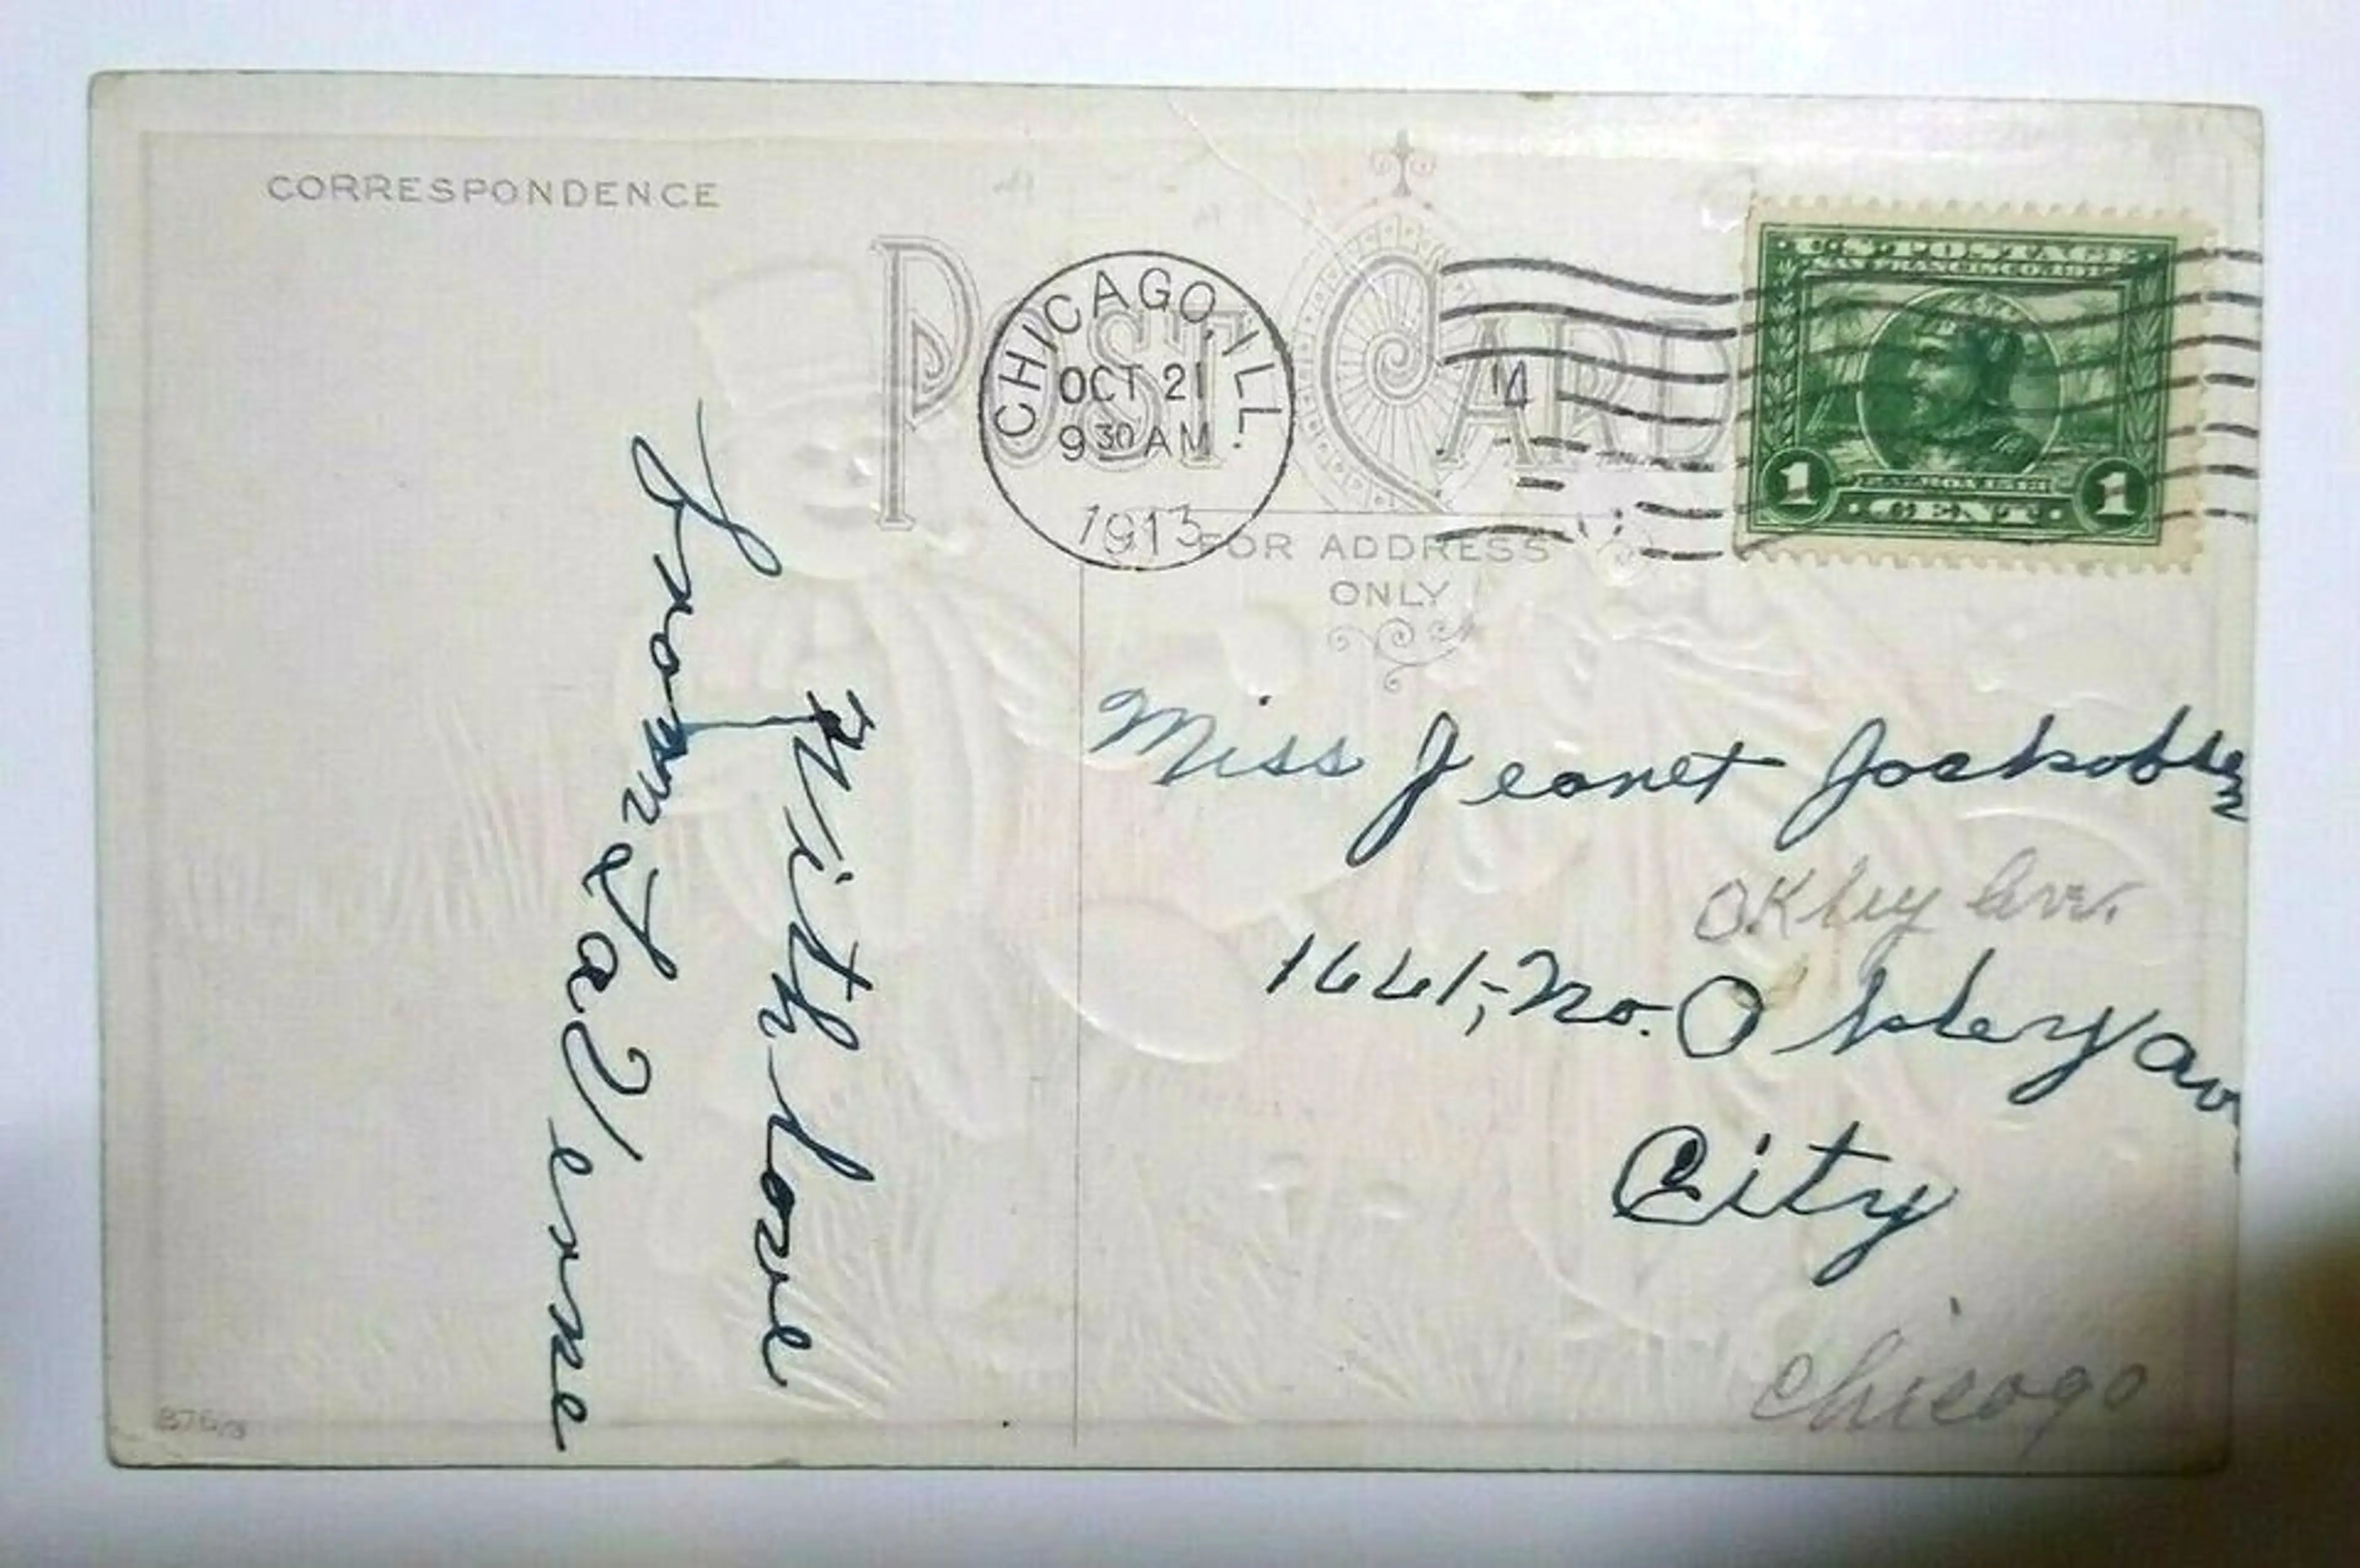 CORRESPONDENCE
POST CARD
CHICAGO, ILL.
OCT 21
9 30 AM
1913
14
U.S. POSTAGE
SAN FRANCISCO 1915
BALBOA 1513
1 CENT 1
FOR ADDRESS
ONLY
With love
from LaVerne
Miss Jeanet
Okley Ave.
1661, No. Okley Av
City
Chicago